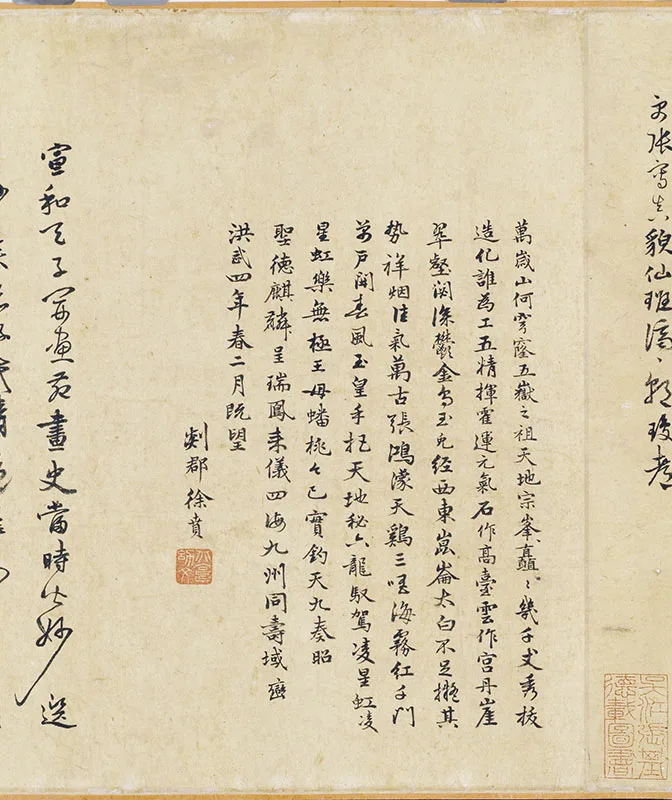 張寫真貌仙班濟〻
萬歲山何穹窿五嶽之祖天地宗峯矗〻幾千丈秀拔
造化誰為工五精揮霍運元氣石作高臺雲作宮丹崖
翠壑閟深鬱金烏玉兔經西東崑崙太白不足擬其
勢祥烟佳氣萬古張鴻濛天鷄三唱海霧紅千門
萬戶開春風玉皇手把天地秘六龍馭駕凌星虹凌
星虹樂無極王母蟠桃〻已實鈞天九奏昭
聖德麒麟呈瑞鳳來儀四海九州同壽域
洪武四年春二月既望
剡郡徐賁
宣和天子開畫苑畫史當時皆妙選
德載圖書